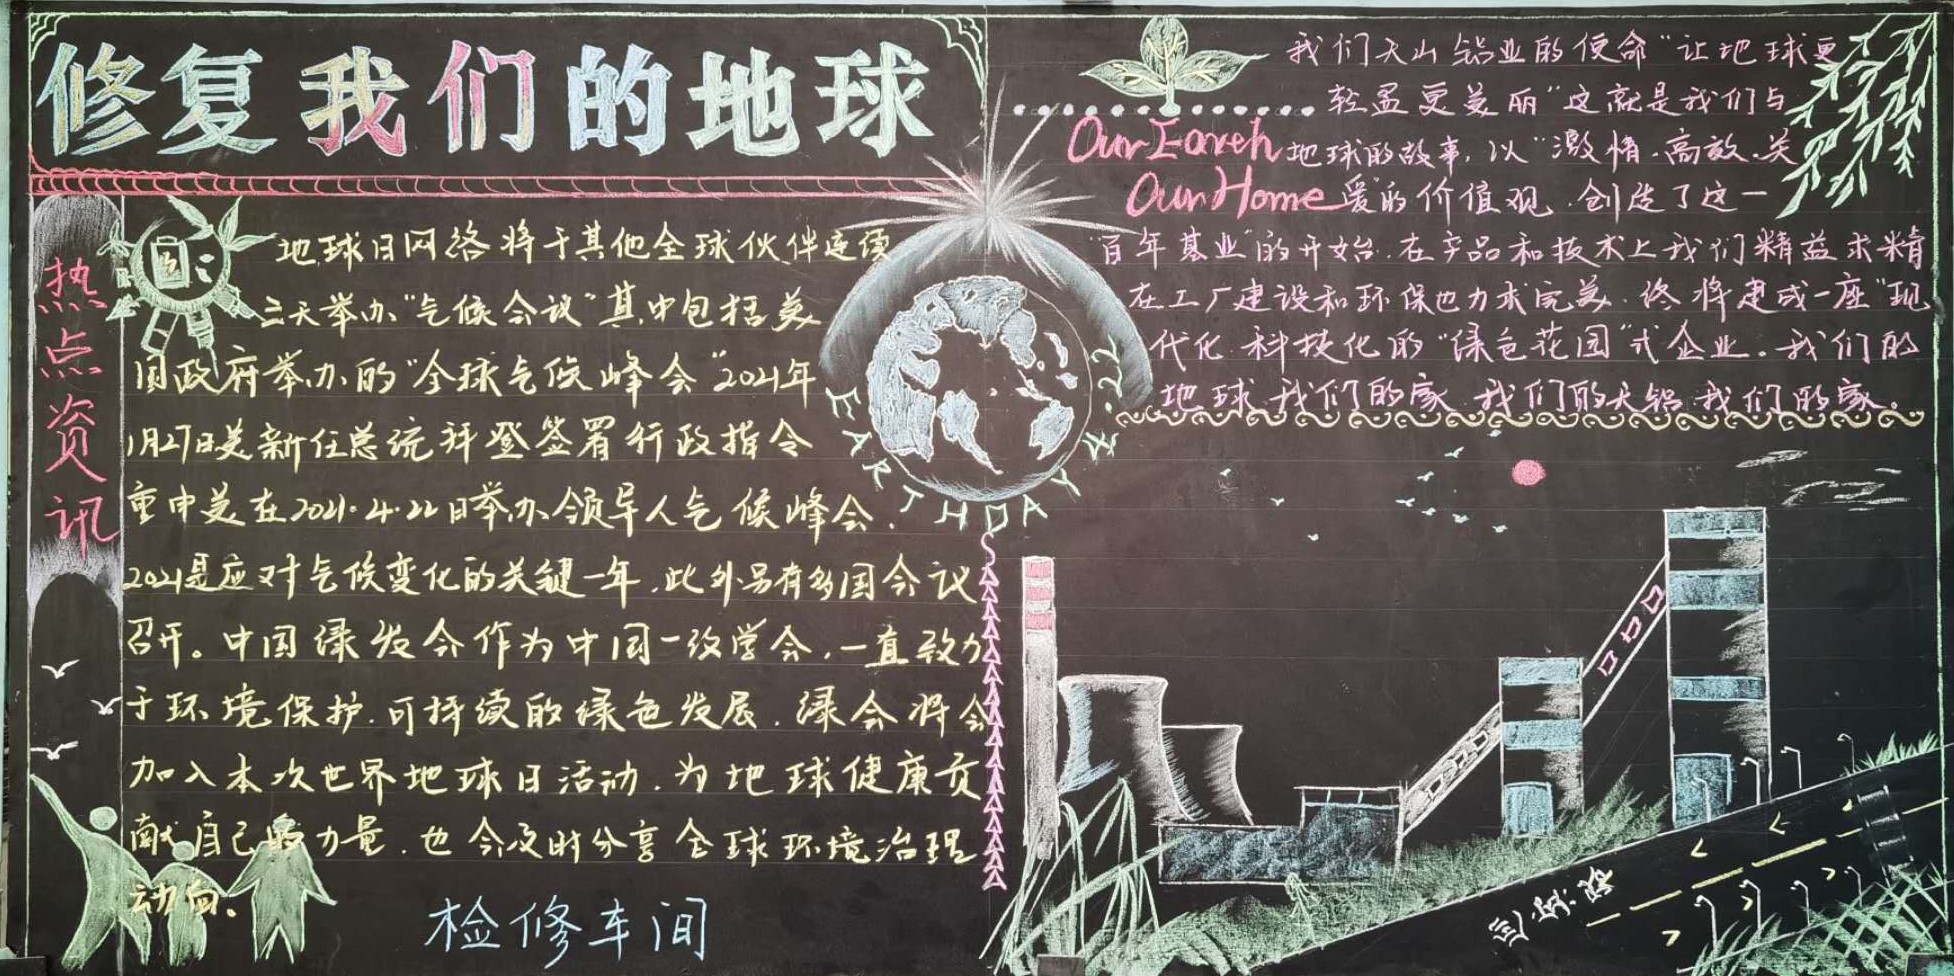 修复我们的地球
热点资讯
地球日网络将于其他全球伙伴连续
三天举办“气候会议”其中包括美
国政府举办的“全球气候峰会”2021年
1月27日美新任总统拜登签署行政指令
重申美在2021.4.22日举办领导人气候峰会.
2021是应对气候变化的关键一年.此外另有多国会议
召开。中国绿发会作为中国一级学会.一直致力
于环境保护.可持续的绿色发展.绿会将会
加入本次世界地球日活动.为地球健康贡
献自己的力量.也会及时分享全球环境治理
动向。
检修车间
EARTH DAY 4.22
我们天山铝业的使命“让地球更
轻盈更美丽”这就是我们与
Our Eareh
地球的故事.以“激情.高效.关
Our Home
爱”的价值观.创造了这一
“百年基业”的开始.在产品和技术上我们精益求精
在工厂建设和环保也力求完美.终将建成一座“现
代化.科技化的“绿色花园”式企业。我们的
地球 我们的家 我们的天铝 我们的家。